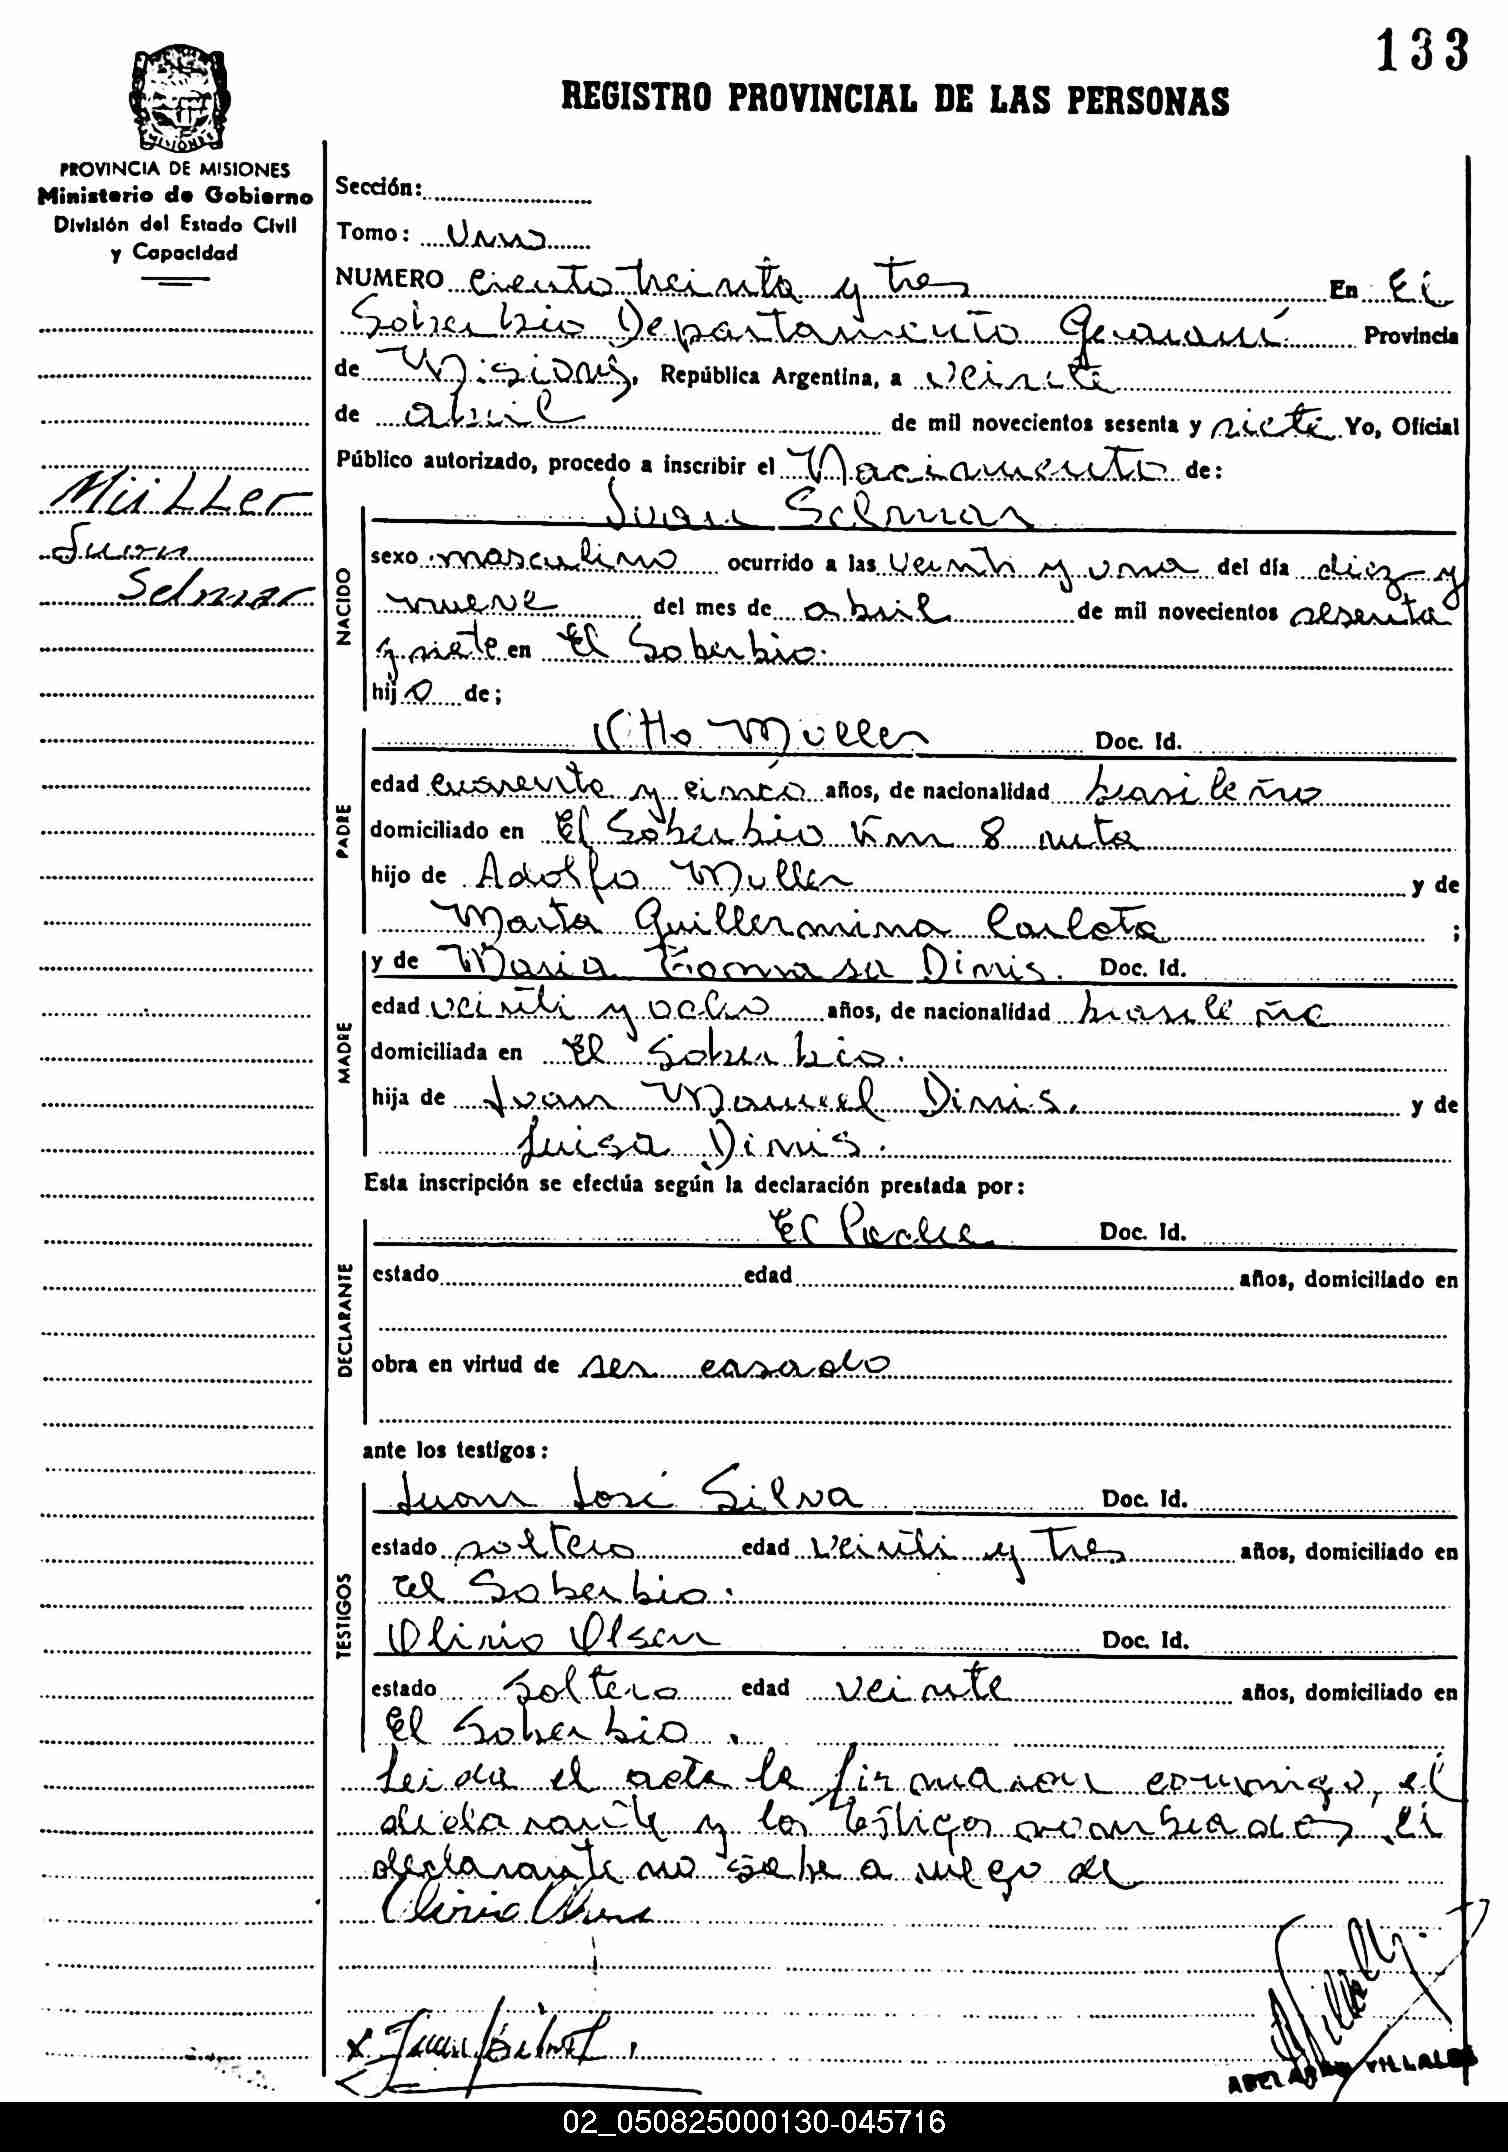 133
REGISTRO PROVINCIAL DE LAS PERSONAS
MISIONES
PROVINCIA DE MISIONES
Ministerio de Gobierno
División del Estado Civil
y Capacidad
Müller
Juan
Selmar
Sección:
Tomo: Uno
NUMERO ciento treinta y tres En El
Soberbio Departamento Guaraní Provincia
de Misiones, República Argentina, a veinte
de abril de mil novecientos sesenta y siete Yo, Oficial
Público autorizado, procedo a inscribir el Nacimiento de:
Juan Selmar
NACIDO
sexo masculino ocurrido a las veinti y una del día diez y
nueve del mes de abril de mil novecientos sesenta
y siete en El Soberbio.
hijo de;
PADRE
Otto Muller Doc. Id.
edad cuarenta y cinco años, de nacionalidad brasileño
domiciliado en El Soberbio Km 8 ruta
hijo de Adolfo Muller y de
Marta Guillermina Carlota ;
MADRE
y de Maria Tomasa Dinis. Doc. Id.
edad veinti y ocho años, de nacionalidad brasileña
domiciliada en El Soberbio.
hija de Juan Manuel Dinis. y de
Luisa Dinis.
Esta inscripción se efectúa según la declaración prestada por:
DECLARANTE
El Padre Doc. Id.
estado edad años, domiciliado en
obra en virtud de ser casado
ante los testigos:
TESTIGOS
Juan José Silva Doc. Id.
estado soltero edad veinti y tres años, domiciliado en
El Soberbio.
Olirio Olsen Doc. Id.
estado soltero edad veinte años, domiciliado en
El Soberbio.
Leida el acta la firmaron conmigo, el
declarante y los testigos nombrados, el
declarante no sabe a ruego de
ABELARDO VILLALBA
02_050825000130-045716